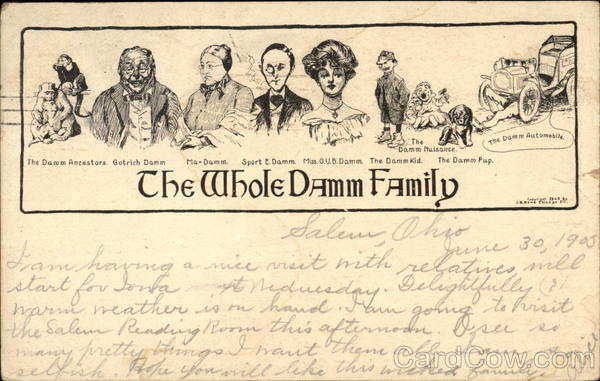 The Damm Ancestors. Gotrich Damm Ma-Damm. Sport E. Damm. Miss. O.U.B. Damm. The Damm Kid. The Damm Nuisance. The Damm Pup. The Damm Automobile.
The Whole Damm Family
Salem, Ohio
June 30, 1905
I am having a nice visit with relatives, will
start for Iowa Wednesday. Delightfully (?)
warm weather is on hand. I am going to visit
the Salem Reading Room this afternoon. I see so
many pretty things I want them all.
selfish. Hope you will like this wicked family.
CardCow.com